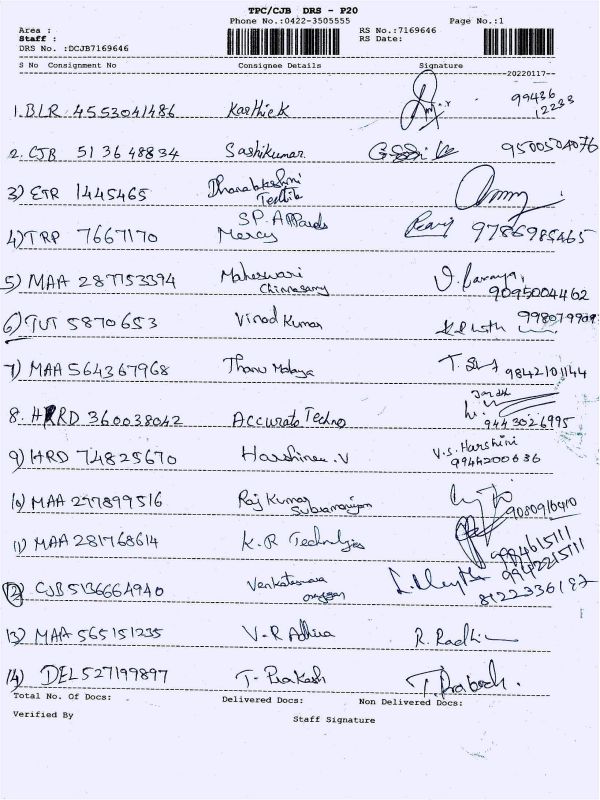 TPC/CJB DRS - P20
Phone No.:0422-3505555 Page No.:1
Area : RS No.:7169646
Staff : RS Date:
DRS No. :DCJB7169646
S No Consignment No Consignee Details Signature
20220117
1. BLR 4553041486 Karthick 99436
12233
2. CJB 5136648834 Sashikumar 9500504076
3) ETR 1445465 Dhanalakshmi
Textile
4) TRP 7667170 S.P. Apparels
Mercy Ravi 9786985465
5) MAA 287153394 Maheswari
Chinnasamy 9095004462
6) TUT 5870653 Vinod Kumar
7) MAA 564367968 9842101144
8. HRD 360038042 Accurate Techno 9443026995
9) HRD 74825670 Harshinee.V V.S. Harshini
9944200636
10) MAA 297899516 Raj Kumar
Subramaniyam 9080910410
11) MAA 281768614 K.R Technologies
12) CJB5136664940 Venkateswara 9942215711
8122336187
13) MAA 565151235 V-R Adhira R. Radhi
14) DEL527199897 T-Prakash T. Prakash.
Total No. Of Docs: Delivered Docs: Non Delivered Docs:
Verified By Staff Signature